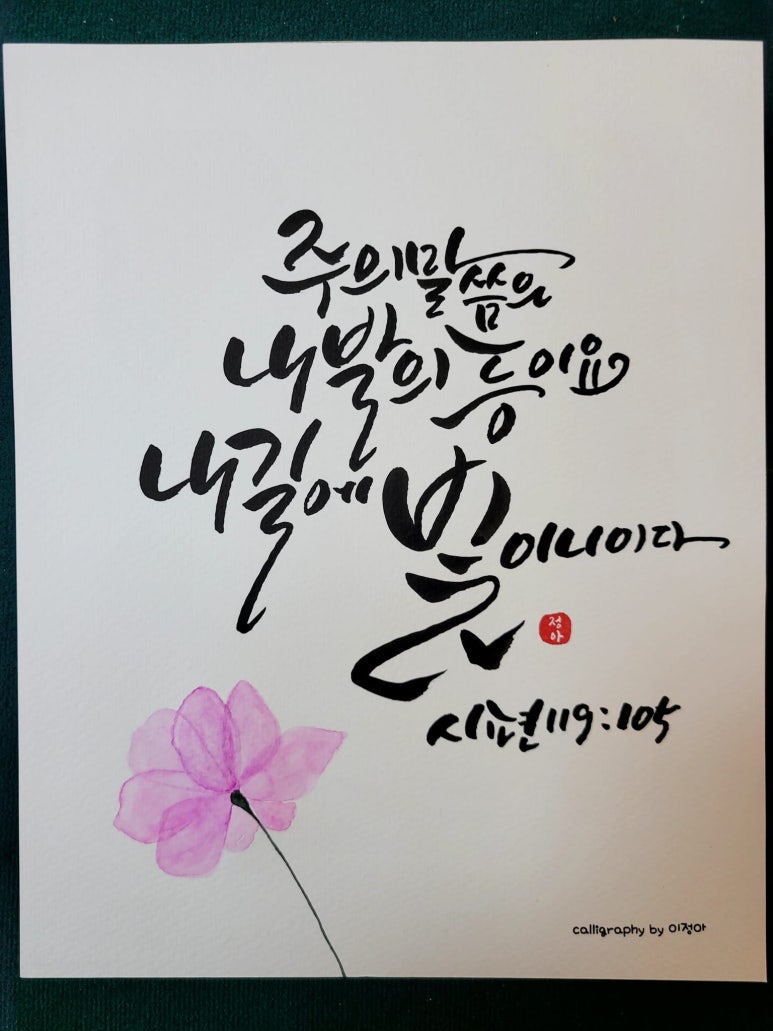 주의말씀은
내발의등이요
내길에빛이니이다
정아
시편119:105
calligraphy by 이정아